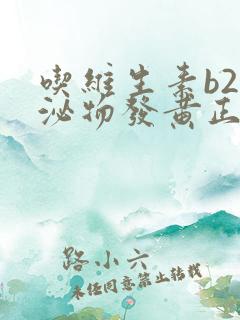 喫維生素b2
泌物發黃正
路小六
未任同意禁止轉載